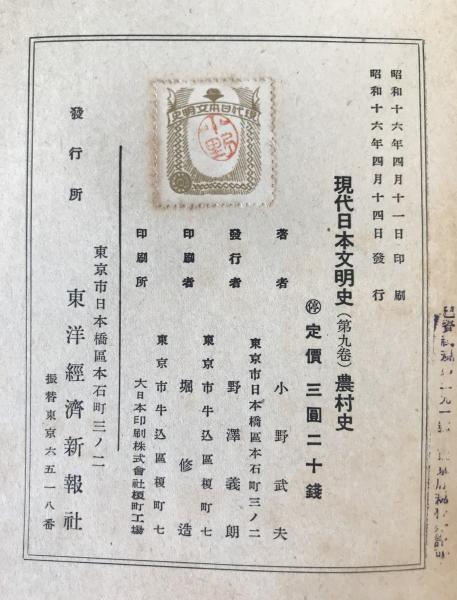 昭和十六年四月十一日印刷
昭和十六年四月十四日發行
現代日本文明史（第九卷）農村史
停 定價 三圓二十錢
著者 小野武夫
東京市日本橋區本石町三ノ二
發行者 野澤義朗
東京市牛込區榎町七
印刷者 堀修造
東京市牛込區榎町七
印刷所 大日本印刷株式會社榎町工場
現代日本文明史
小野
東京市日本橋區本石町三ノ二
發行所 東洋經濟新報社
振替東京六五一八番